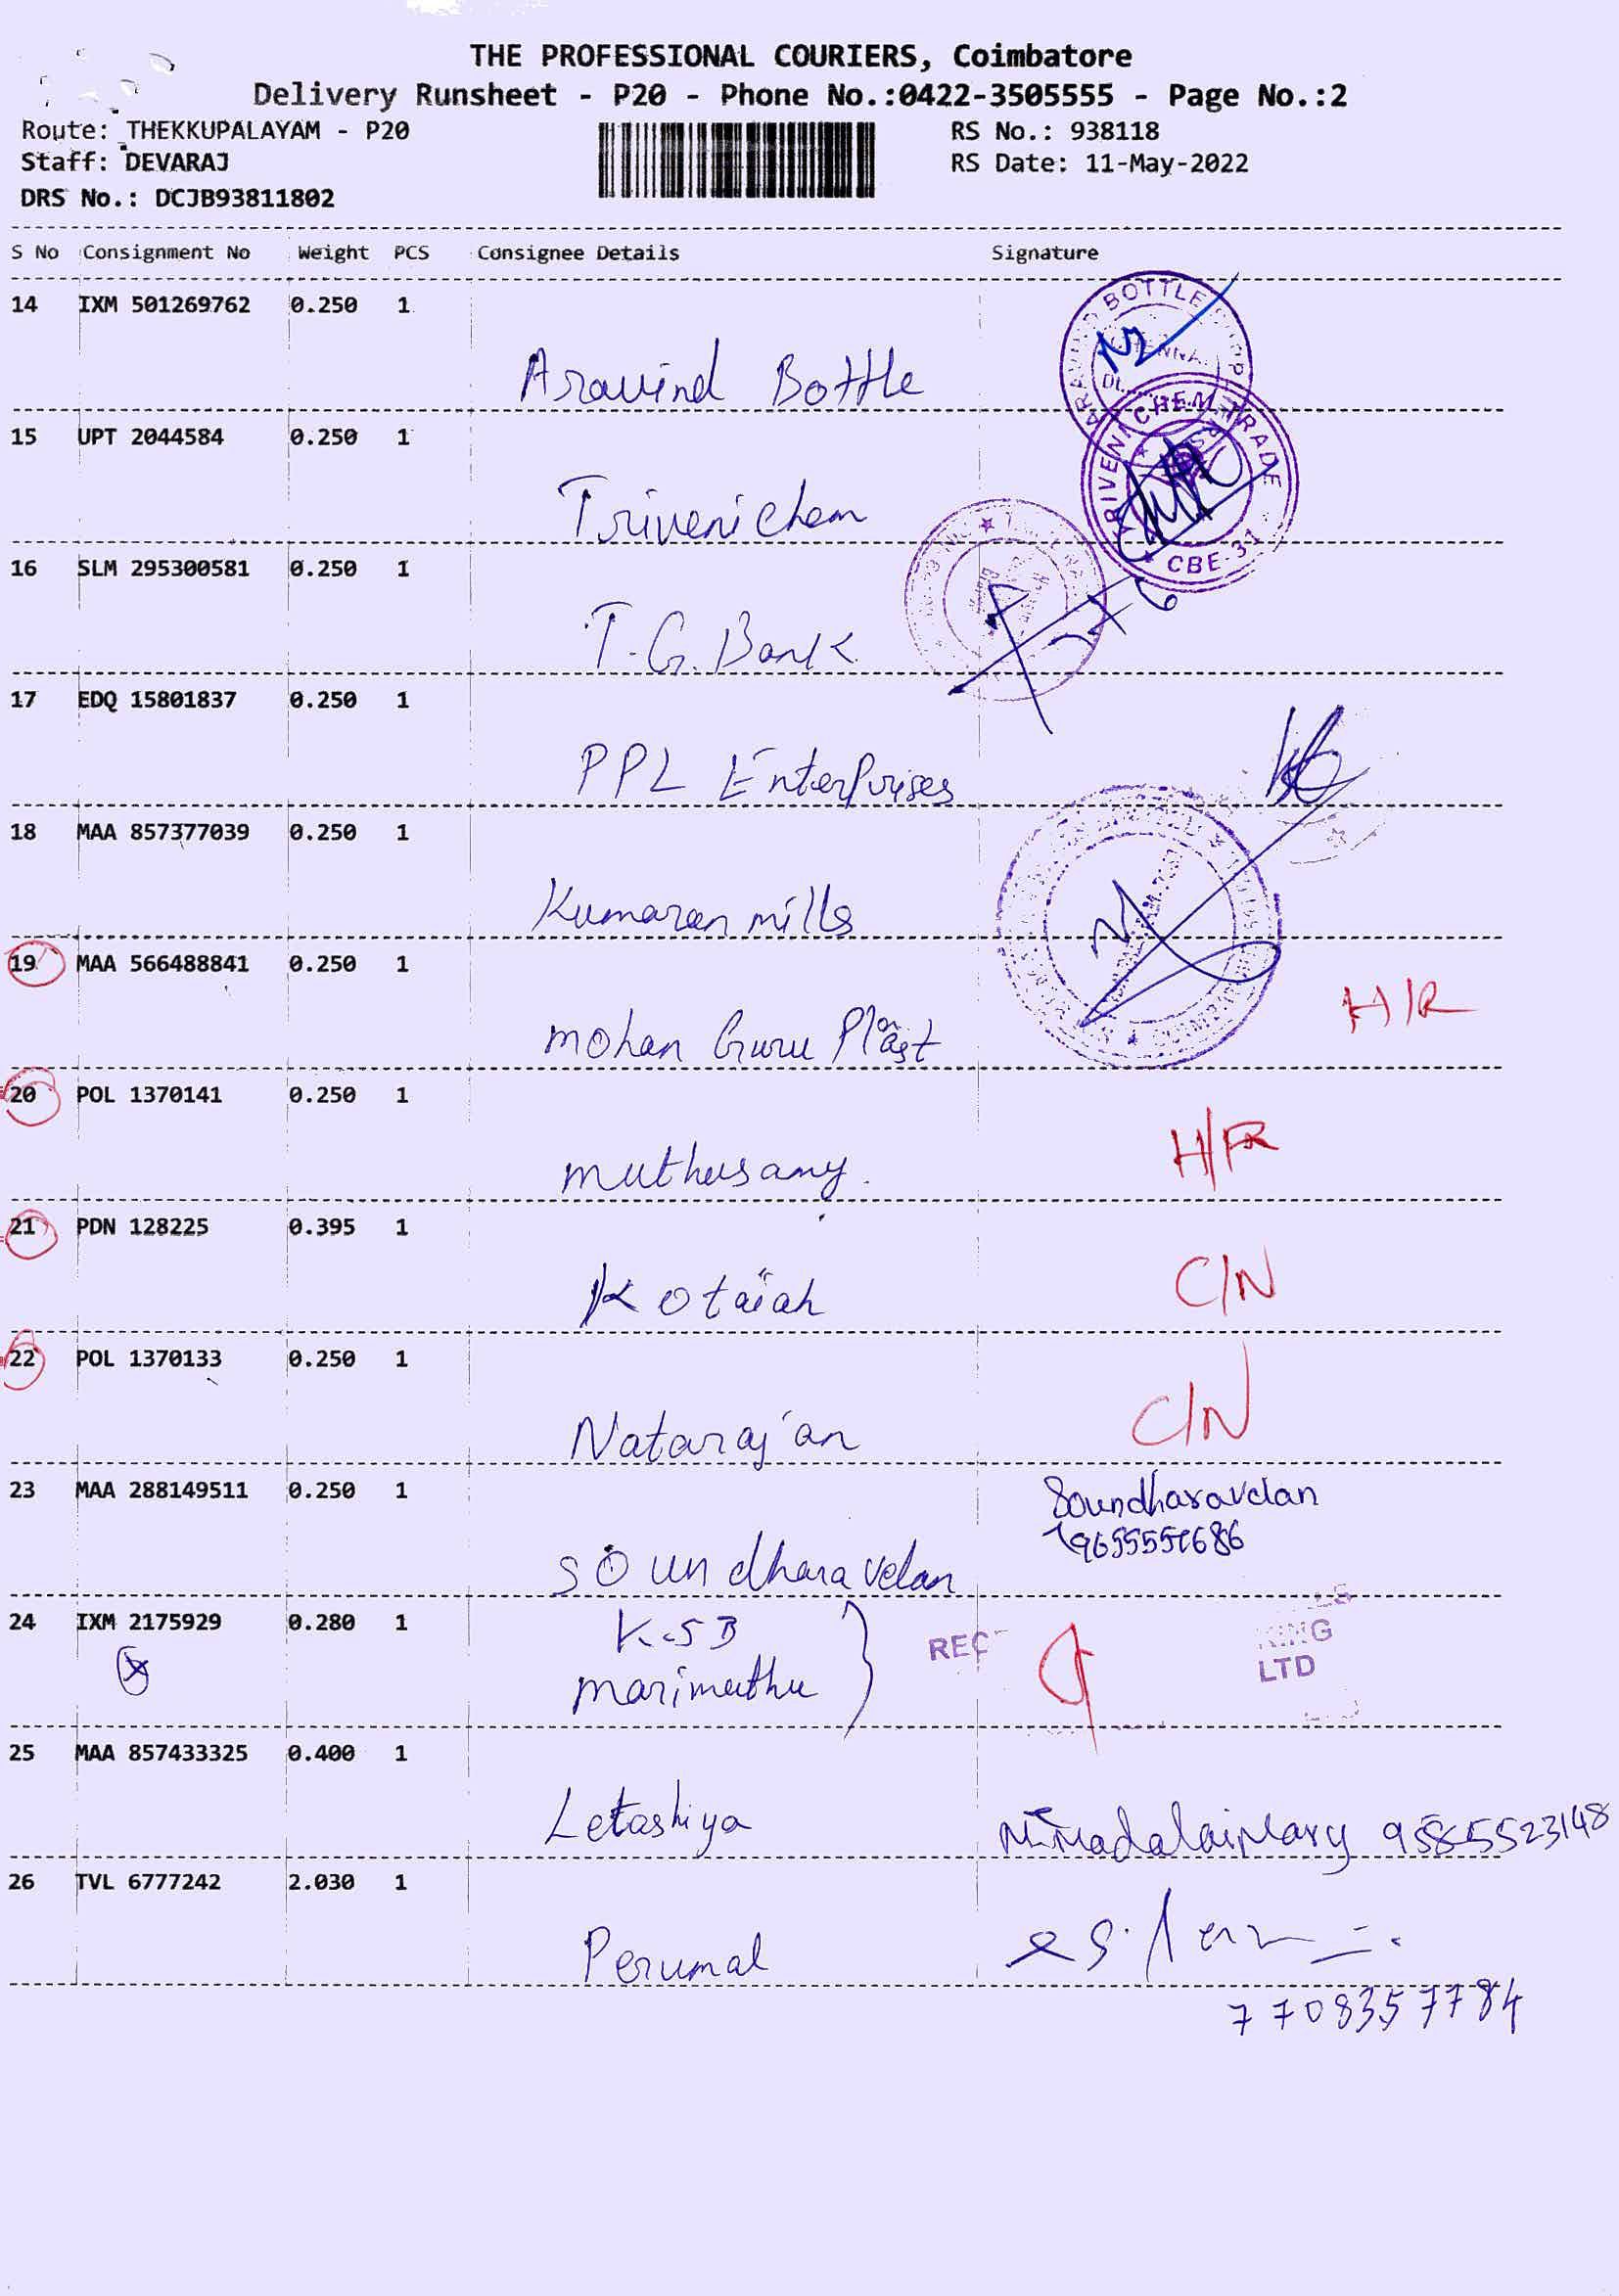 THE PROFESSIONAL COURIERS, Coimbatore
Delivery Runsheet - P20 - Phone No.:0422-3505555 - Page No.:2
Route: THEKKUPALAYAM - P20
RS No.: 938118
Staff: DEVARAJ
RS Date: 11-May-2022
DRS No.: DCJB93811802
S No Consignment No Weight PCS Consignee Details Signature
14 IXM 501269762 0.250 1
BOTTLE
Aravind Bottle
15 UPT 2044584 0.250 1
TRIVENI CHEM TRADE
CBE-31
Trivenichem
16 SLM 295300581 0.250 1
T.G. Bank
17 EDQ 15801837 0.250 1
PPL Enterprises
18 MAA 857377039 0.250 1
Kumaran mills
19 MAA 566488841 0.250 1
H/R
mohan Guru Plast
20 POL 1370141 0.250 1
H/FR
muthusamy.
21 PDN 128225 0.395 1
C/N
Kotaiah
22 POL 1370133 0.250 1
C/N
Natarajan
23 MAA 288149511 0.250 1
Soundharavelan
soundharavelan
24 IXM 2175929 0.280 1
K.S B
marimuthu
LTD
25 MAA 857433325 0.400 1
Letashiya
26 TVL 6777242 2.030 1
Perumal
7708357784